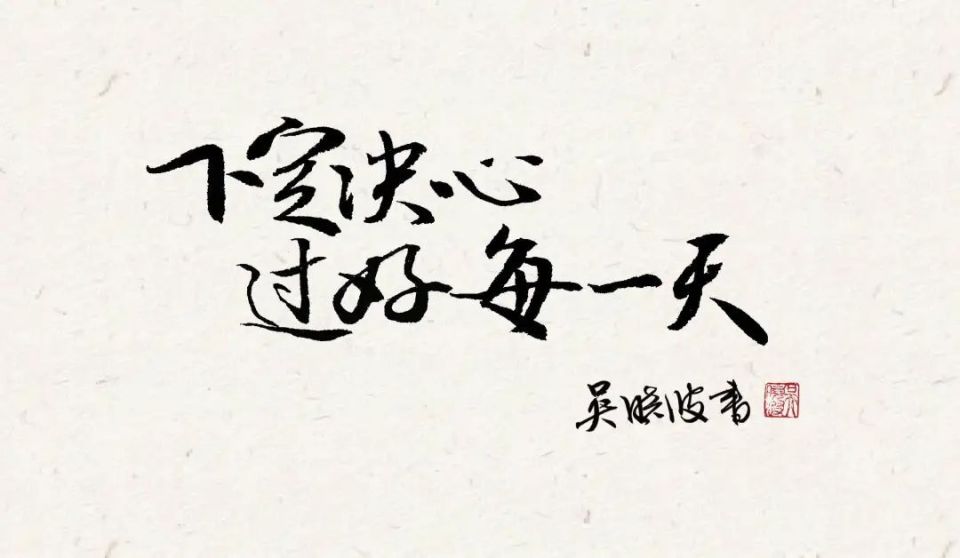 下定决心
过好每一天
吴晓波书